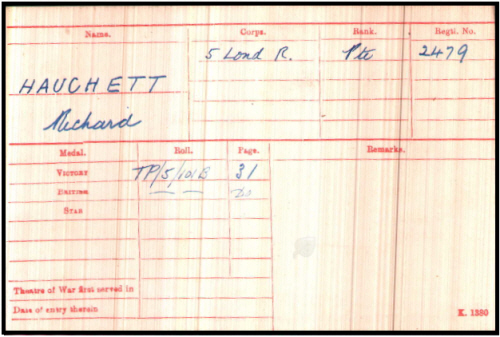 Name. Corps. Rank. Regtl. No.
5 Lond R. Pte 2479
HAUCHETT
Richard
Medal. Roll. Page. Remarks.
VICTORY TP/5/101B 31
BRITISH do
STAR
Theatre of War first served in
Date of entry therein
K. 1380